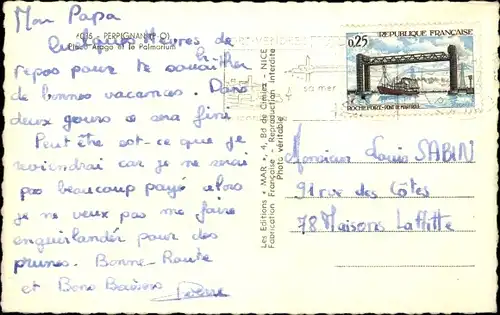 Mon Papa
6035 - PERPIGNAN (P. O.)
Place Arago et le Palmarium
Quelques Heures de
repos pour te souhaiter
de bonnes vacances. Dans
deux jours ce sera fini
Peut être est-ce que je
reviendrai car je ne serai
pas beaucoup payé alors
je ne veux pas me faire
enguirlander pour des
prunes. Bonne Route
et Bons Baisers
Les Editions "MAR", 4, Bd de Cimiez - NICE
Fabrication Française - Reproduction Interdite
Photo véritable
sa mer
REPUBLIQUE FRANÇAISE
0,25
ROCHEFORT - PONT DE MARTROU
Monsieur Louis SABIN
91 rue des Côtes
78 Maisons Laffitte